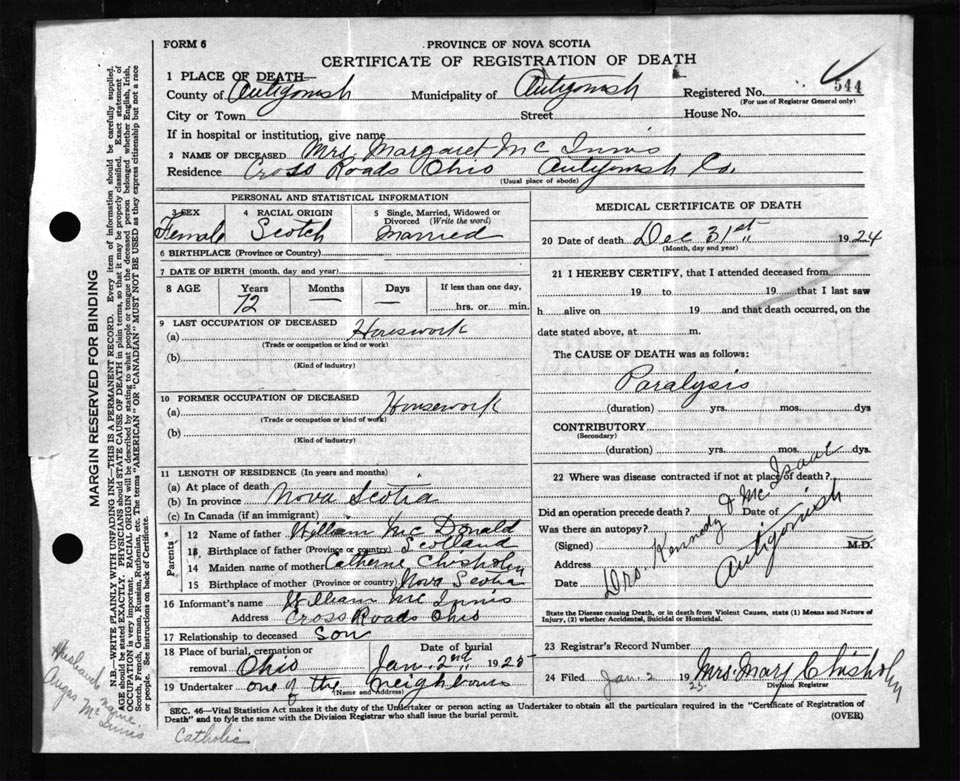 FORM 6
PROVINCE OF NOVA SCOTIA
CERTIFICATE OF REGISTRATION OF DEATH
544
1 PLACE OF DEATH—
County of Antigonish Municipality of Antigonish Registered No.
(For use of Registrar General only)
City or Town Street House No.
If in hospital or institution, give name
2 NAME OF DECEASED Mrs. Margaret Mc Innis
Residence Cross Roads Ohio Antigonish Co.
(Usual place of abode)
PERSONAL AND STATISTICAL INFORMATION
3 SEX 4 RACIAL ORIGIN 5 Single, Married, Widowed or Divorced (Write the word)
Female Scotch Married
6 BIRTHPLACE (Province or Country)
7 DATE OF BIRTH (month, day and year)
8 AGE Years Months Days If less than one day,
72 — — hrs. or min.
9 LAST OCCUPATION OF DECEASED
(a) Housework
(Trade or occupation or kind or work)
(b)
(Kind of industry)
10 FORMER OCCUPATION OF DECEASED
(a) Housework
(Trade or occupation or kind of work)
(b)
(Kind of industry)
11 LENGTH OF RESIDENCE (In years and months)
(a) At place of death
(b) In province Nova Scotia
(c) In Canada (if an immigrant)
Parents
12 Name of father William Mc Donald
13 Birthplace of father (Province or country) Scotland
14 Maiden name of mother Catherine Chisholm
15 Birthplace of mother (Province or country) Nova Scotia
16 Informant's name William Mc Innis
Address Cross Roads Ohio
17 Relationship to deceased Son
18 Place of burial, cremation or removal Ohio Date of burial Jan. 2nd 1925
19 Undertaker one of the neighbours
(Name and Address)
MEDICAL CERTIFICATE OF DEATH
20 Date of death Dec 31st 1924
(Month, day and year)
21 I HEREBY CERTIFY, that I attended deceased from
19 to 19 that I last saw
h alive on 19 and that death occurred, on the
date stated above, at m.
The CAUSE OF DEATH was as follows:
Paralysis
(duration) yrs. mos. dys
CONTRIBUTORY
(Secondary)
(duration) yrs. mos. dys.
22 Where was disease contracted if not at place of death?
Did an operation precede death? Date of
Was there an autopsy?
(Signed) M.D.
Address
Date
Drs. Kennedy & Mc Isaac
Antigonish
State the Disease causing Death, or in death from Violent Causes, state (1) Means and Nature of
Injury, (2) whether Accidental, Suicidal or Homicidal.
23 Registrar's Record Number
24 Filed Jan. 2 1925. Mrs. Mary Chisholm
Division Registrar
SEC. 46—Vital Statistics Act makes it the duty of the Undertaker or person acting as Undertaker to obtain all the particulars required in the "Certificate of Registration of
Death" and to fyle the same with the Division Registrar who shall issue the burial permit.
(OVER)
MARGIN RESERVED FOR BINDING
N.B.—WRITE PLAINLY WITH UNFADING INK—THIS IS A PERMANENT RECORD. Every item of information should be carefully supplied.
AGE should be stated EXACTLY. PHYSICIANS should STATE CAUSE OF DEATH in plain terms, so that it may be properly classified. Exact statement of
OCCUPATION is very important. RACIAL ORIGIN will be described by stating to what people or tongue the deceased person belonged whether English, Irish,
Scotch, French, German, Russian, Ruthenian, etc. The terms "AMERICAN" OR "CANADIAN" MUST NOT BE USED as they express citizenship but not a race
or people. See instructions on back of Certificate.
Husband's name
Angus Mc Innis
Catholic